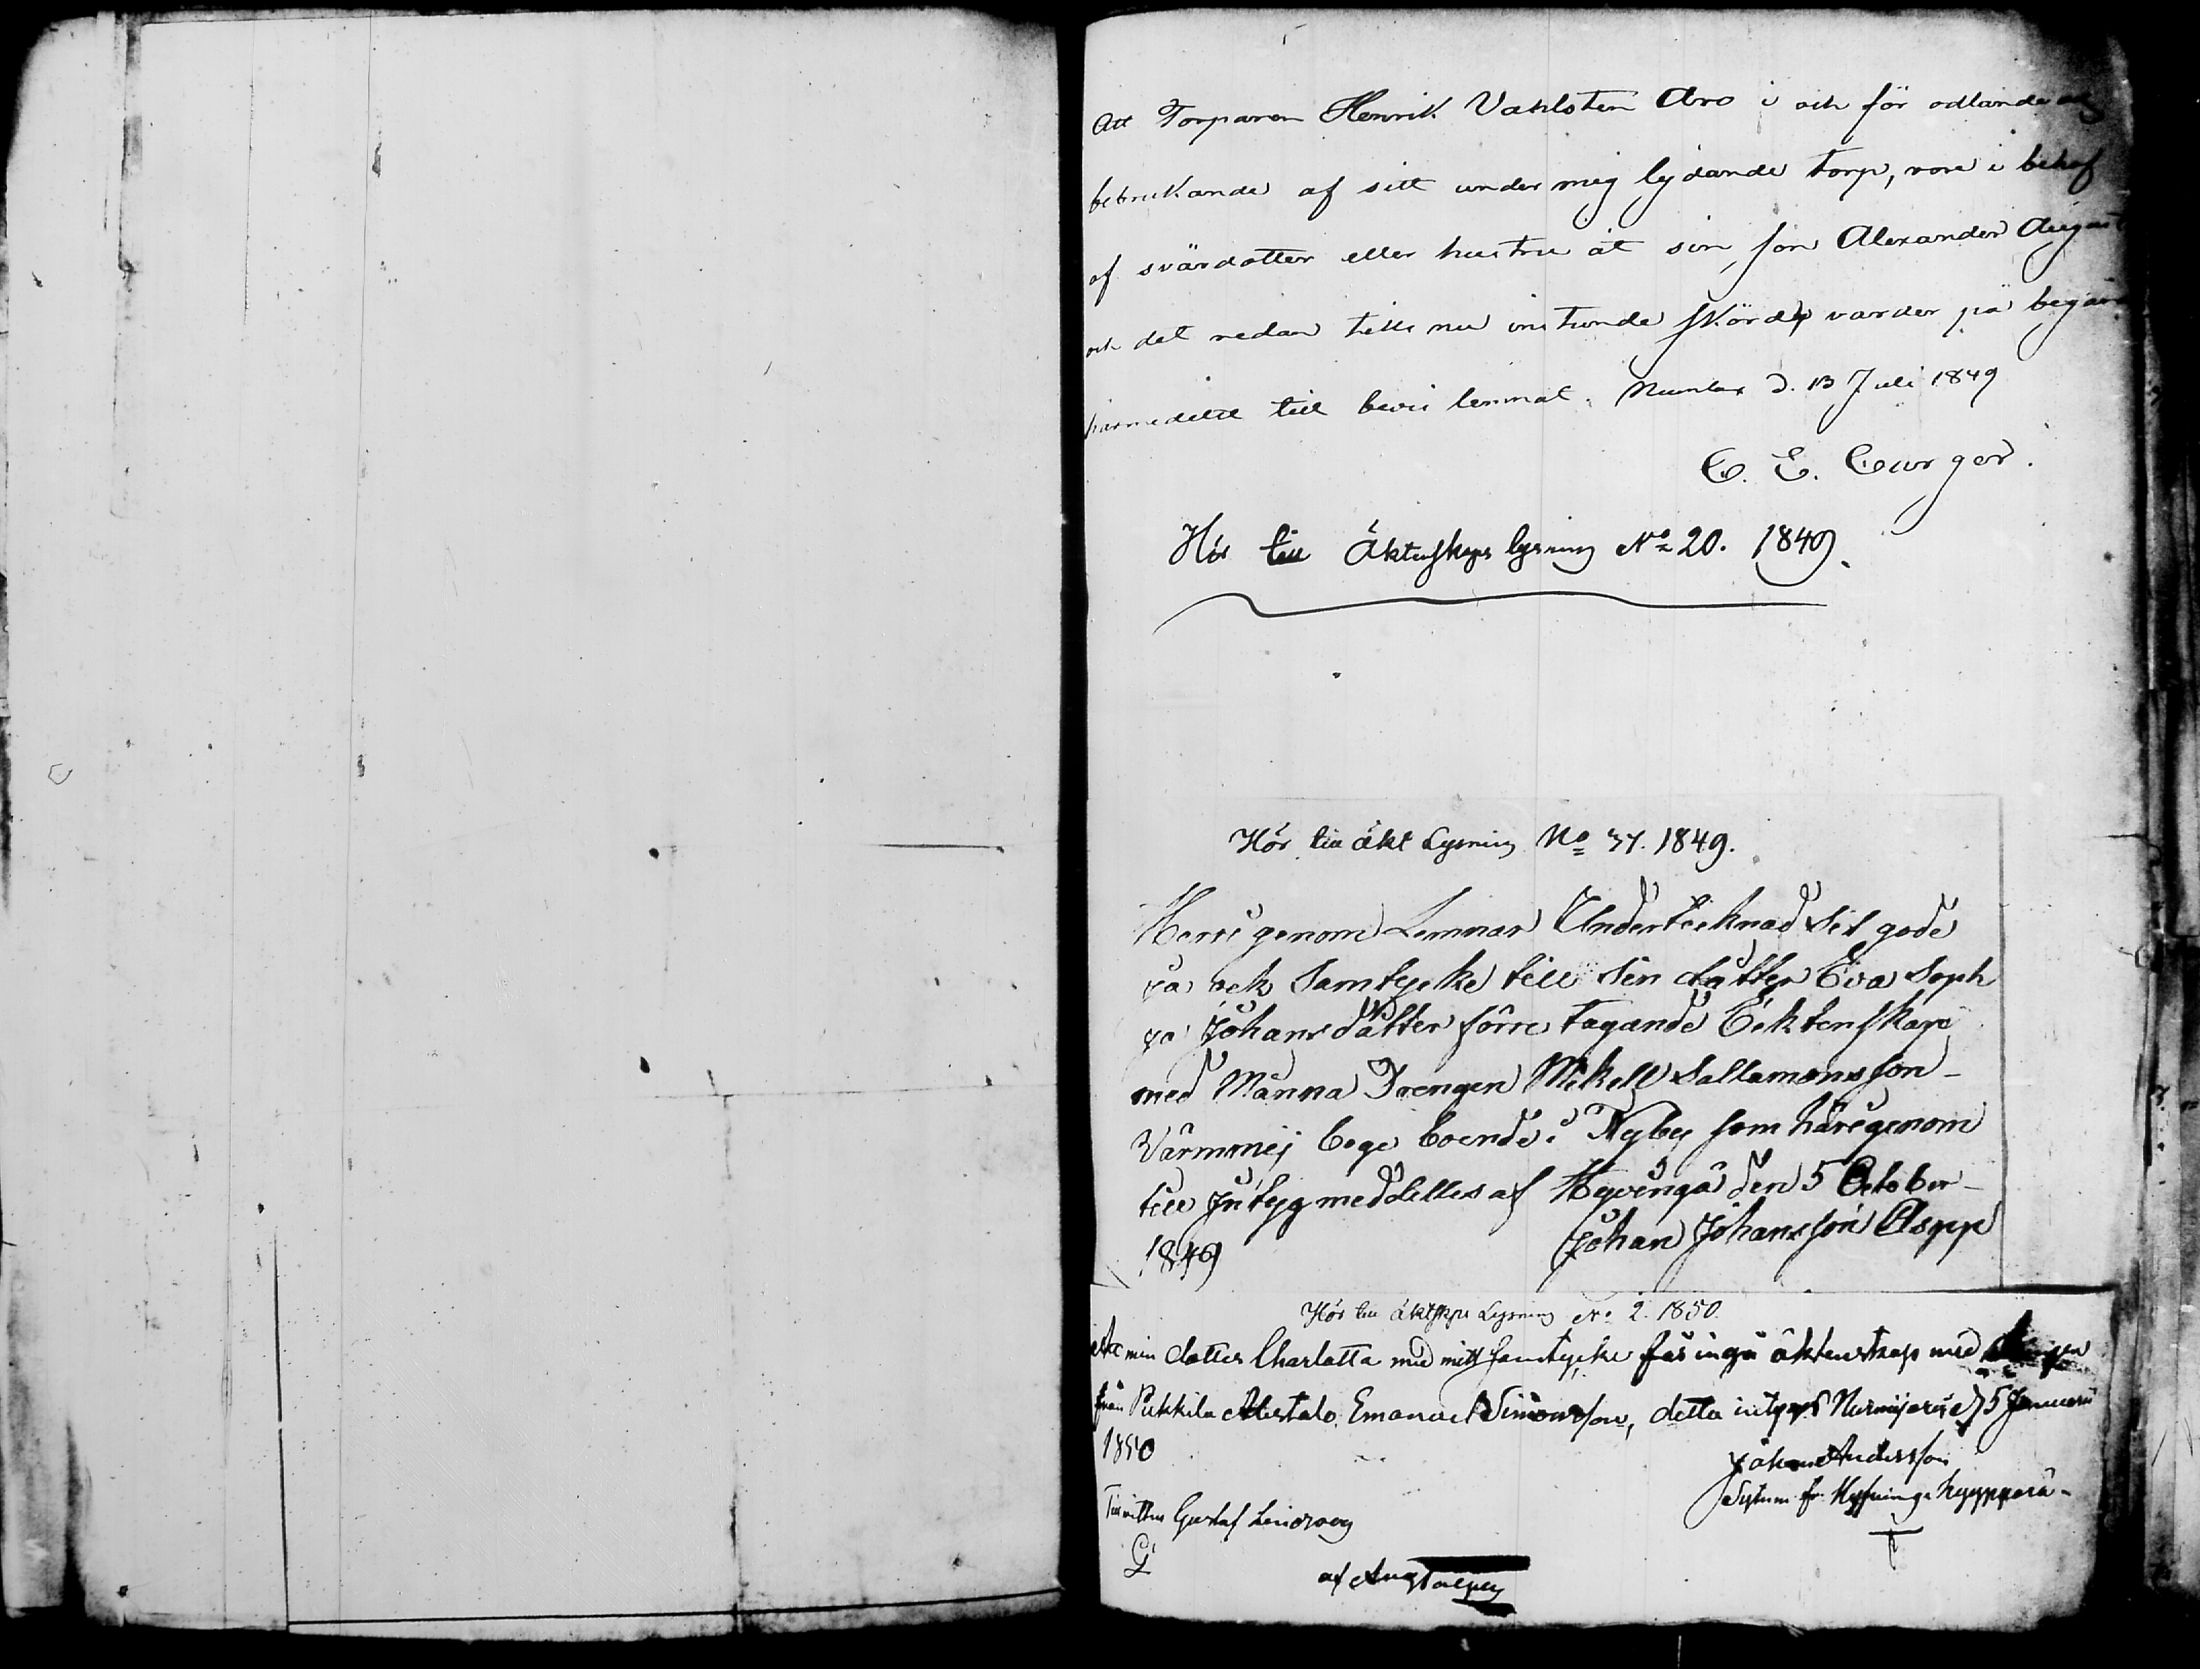 Att Torparen Henrik Vahlsten Aro i och för odlande och
bebrukande af sitt under mig lydande torp, vore i behof
af svärdotter eller hustru åt sin son Alexander August
och det redan till nu instunde skörd, varder på begäran
härmedelst till bevis lemnat. Numlax d. 13 Juli 1849
C. E.
Hör till Äktenskaps lysning No 20. 1849.
Hör till äkt Lysning No 37. 1849.
Herre genom Lemnar Undertecknad Sit gode
ja ock Samtycke till Sin datter Eva Soph
ja Johansdatter förre tagande Ecktenskape
med Månna Drengen Mikell Sallamonsson
Värmmej boende i Nyby som häregenom
till jntyg meddelles af Hyvingå den 5 October
1849 Johan Johansson Aspp
Hör till äktskps Lysning No 2. 1850.
Att min dotter Charlotta med mitt samtycke får ingå äktenskap med
från Pukkila Alestalo Emanuel Simonsson, detta intygas Nurmijervi d 5 Januari
1850
Johan Andersson
Sytnin fr. Hyfvinge Kyyppärä
Till vittne Gustaf
G
af